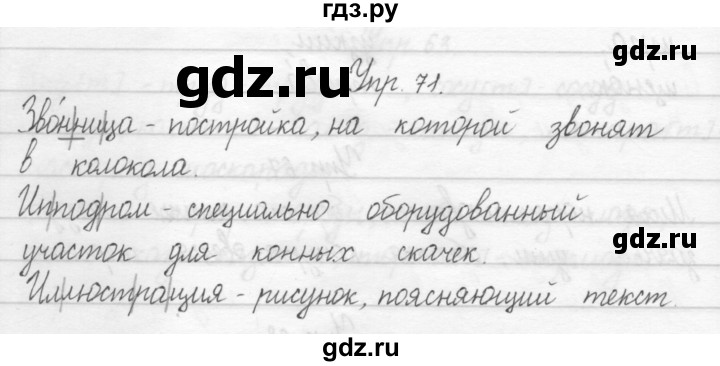 гдз.ру
gdz.ru
Упр. 71.
gdz.ru
Зво́н|ни|ца - постройка, на которой звонят
в колокола.
Ип|по|дром - специально оборудованный
gdz.ru
участок для конных скачек.
Ил|лю|стра|ция - рисунок, поясняющий текст.
gdz.ru
gdz.ru